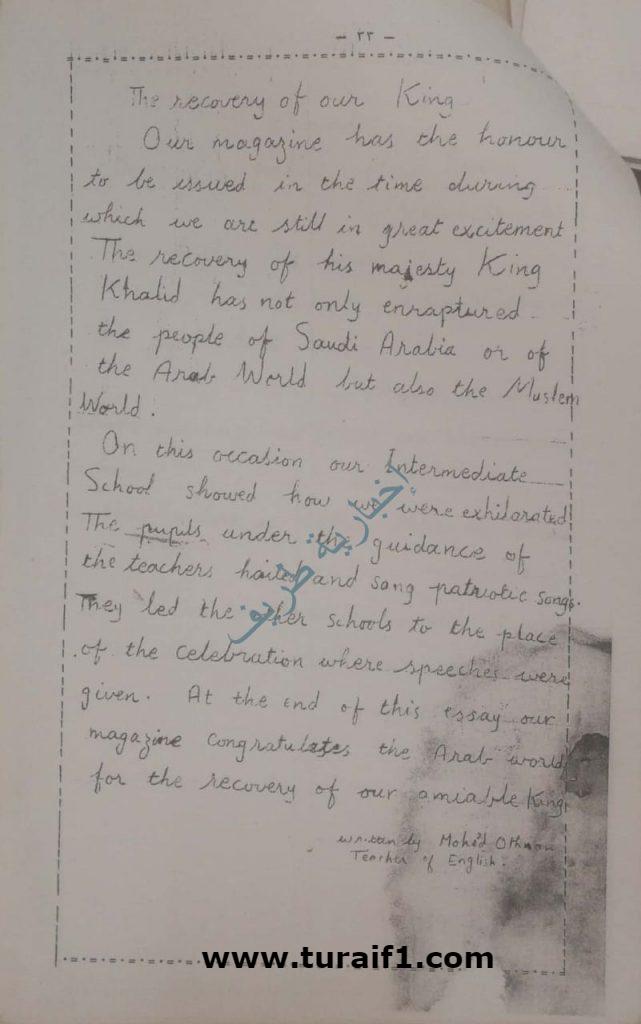 - ٢٢ -
The recovery of our King
Our magazine has the honour
to be issued in the time during
which we are still in great excitement
The recovery of his majesty King
Khalid has not only enraptured
the people of Saudi Arabia or of
the Arab World but also the Muslem
World.
On this occasion our Intermediate
School showed how we were exhilarated!
The pupils under the guidance of
the teachers hailed and sang patriotic songs.
They led the other schools to the place
of the celebration where speeches were
given. At the end of this essay our
magazine congratulates the Arab world
for the recovery of our amiable King
written by Mohe'd Othman
Teacher of English.
اخبارية طريف
www.turaif1.com